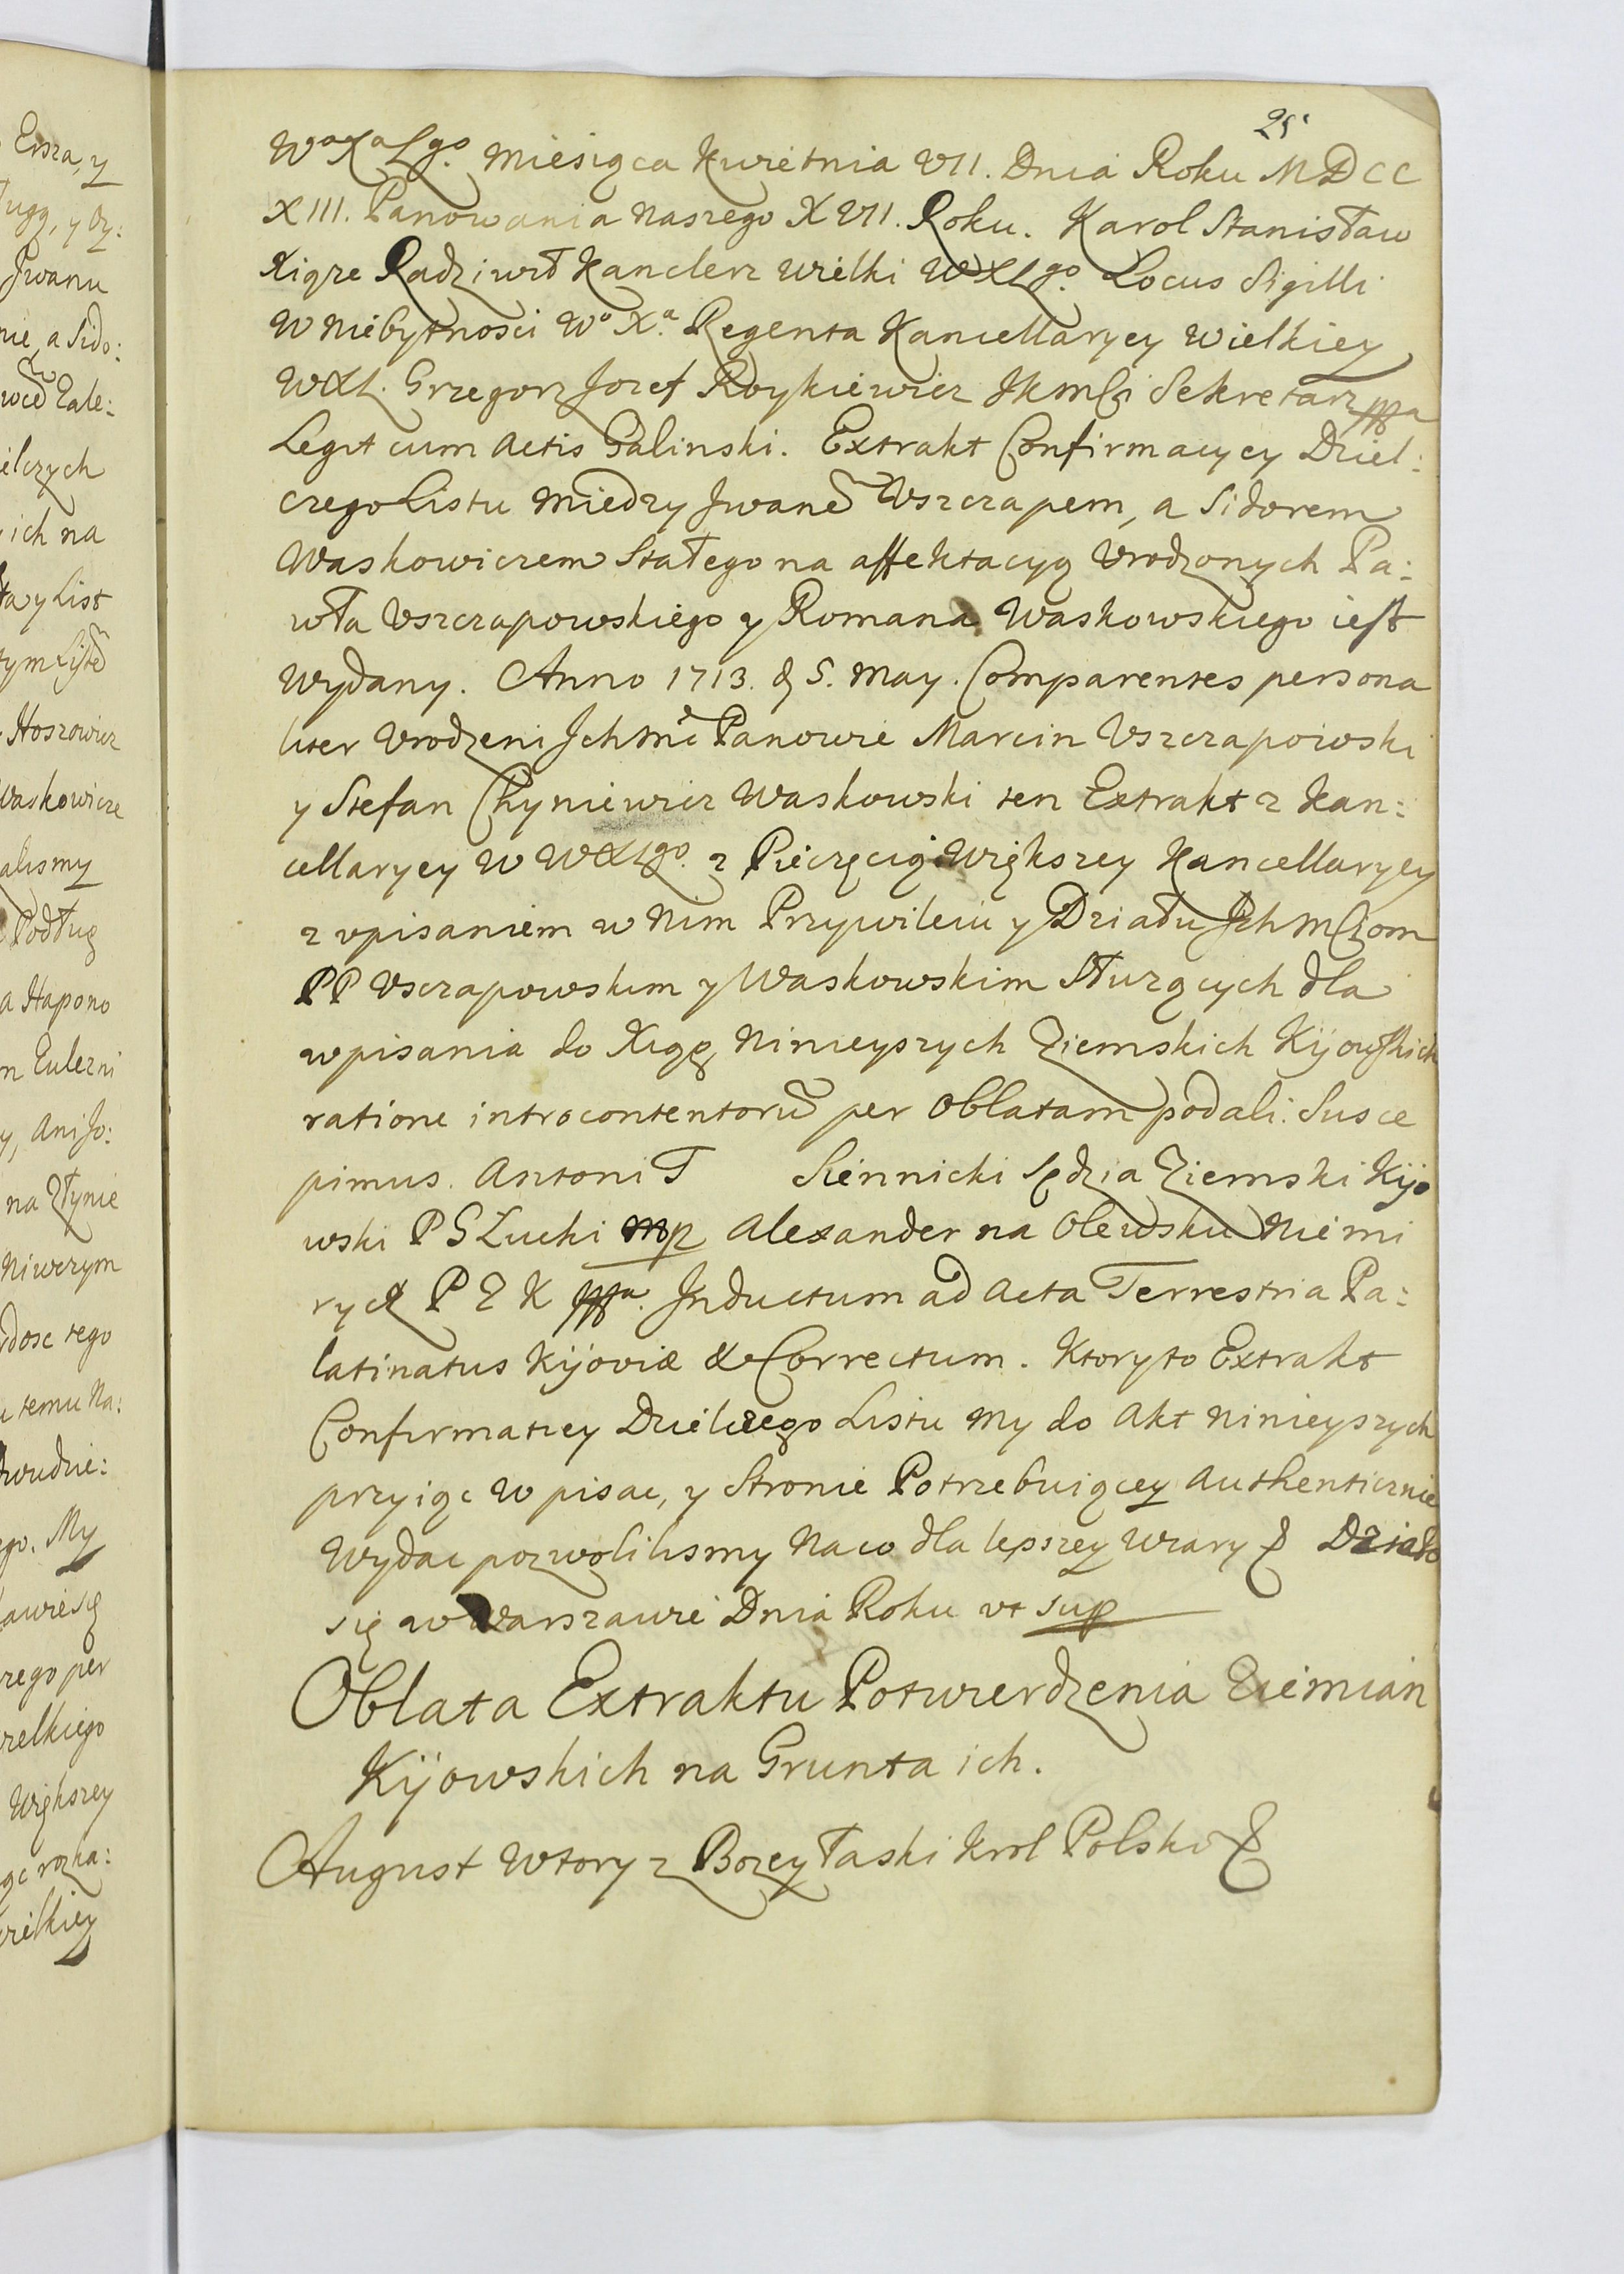 25
WᵒXᵃLgo. Miesiąca Kwietnia VII. Dnia Roku MDCC
XIII. Panowania Naszego XVII. Roku. Karol Stanisław
Xiąże Radziwił Kanclerz Wielki WXLgo. Locus Sigilli
W Niebytnosci Wᵒ Xᵃ Regenta Kancellaryey Wielkiey
WXL. Grzegorz Jozef Roykiewicz JKMCi Sekretarz ppa
Legit cum Actis Galinski. Extrakt Confirmacyey Dziel:
czego Listu Miedzy Jwanē Vszczapem, a Sidorem
Waskowiczem Stałego na affektacyą Vrodzonych Pa:
wła Vszczapowskiego y Romana Waskowskiego iest
wydany. Anno 1713. d 5. May. Comparentes persona
liter Vrodzeni Jchmc Panowie Marcin Vszczapowski
y Stefan Chyniewicz Waskowski ten Extrakt z Kan:
cellaryey W WXLgo. z Pieczęcią Większey Kancellaryey
z vpisaniem w Nim Przywileiu y Działu JchMCiom
PP Vsczapowskim y Waskowskim Służących dla
wpisania do Xiąg Ninieyszych Ziemskich Kijowskich
ratione introcontentorū per Oblatam podali. Susce
pimus. Antoni T Siennicki Sędzia Ziemski Kijo
wski P G Łucki mp Alexander na Olewsku Niemi
rycz P Z K ppa. Jnductum ad Acta Terrestria Pa:
latinatus Kijoviæ & Correctum. Ktoryto Extrakt
Confirmatiey Dzielczego Listu My do Akt Ninieyszych
przyiąc Wpisac, y Stronie Potrzebuiącey Authenticznie
Wydac pozwolilismy Naco dla lepszey Wiary & Działo
się w Warszawie Dnia Roku vt sup
Oblata Extraktu Potwierdzenia Ziemian
Kijowskich na Grunta ich.
August Wtory z Bozey Łaski Krol Polski &